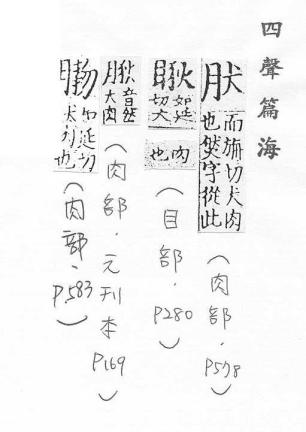 四聲篇海
肰 而旃切犬肉
也㸐字從此
（肉部．P578）
如延
切犬
肉
也
（目部．P280）
音然
犬肉
（肉部．元刊本P169）
如延切
犬肉也
（肉部．P583）